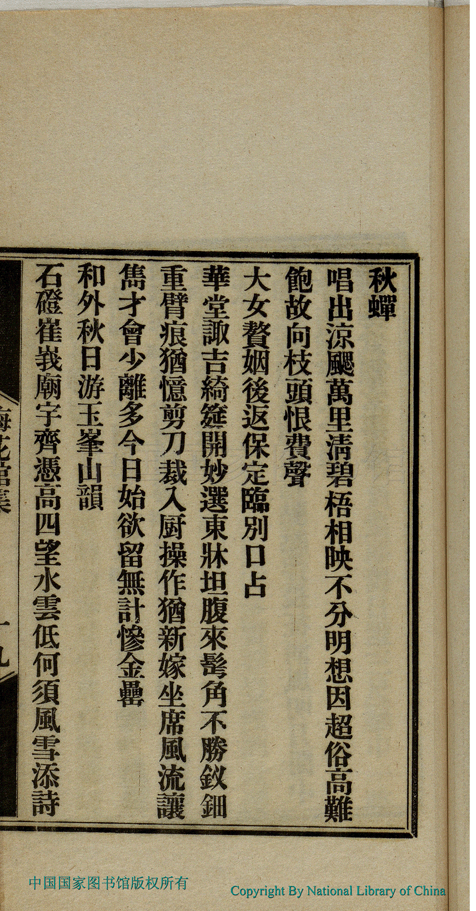 秋蟬
唱出涼颸萬里淸碧梧相映不分明想因超俗高難
飽故向枝頭恨費聲
大女贅姻後返保定臨別口占
華堂諏吉綺筵開妙選東牀坦腹來髩角不勝釵鈿
重臂痕猶憶剪刀裁入厨操作猶新嫁坐席風流讓
雋才會少離多今日始欲留無計慘金罍
和外秋日游玉峯山韻
石磴崔峩廟宇齊憑高四望水雲低何須風雪添詩
梅花館集
十九
中国国家图书馆版权所有
Copyright By National Library of China